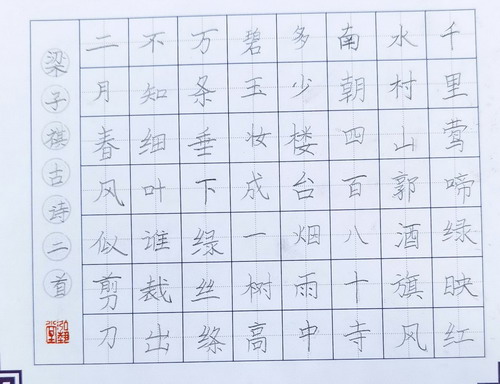 千里莺啼绿映红
水村山郭酒旗风
南朝四百八十寺
多少楼台烟雨中
碧玉妆成一树高
万条垂下绿丝绦
不知细叶谁裁出
二月春风似剪刀
梁子棋古诗二首